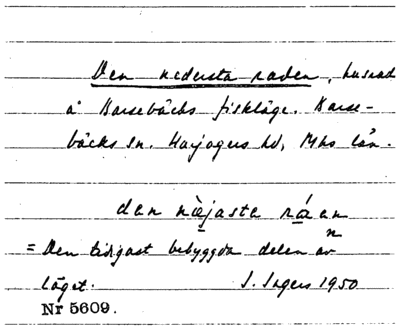 Den nedersta raden, husrad
å Barsebäcks fiskläge. Barse-
bäcks sn. Harjagers hd, Mhs län.
den næjasta ráen
n
= Den tidigast bebyggda delen av
läget. I. Ingers 1950
Nr 5609.